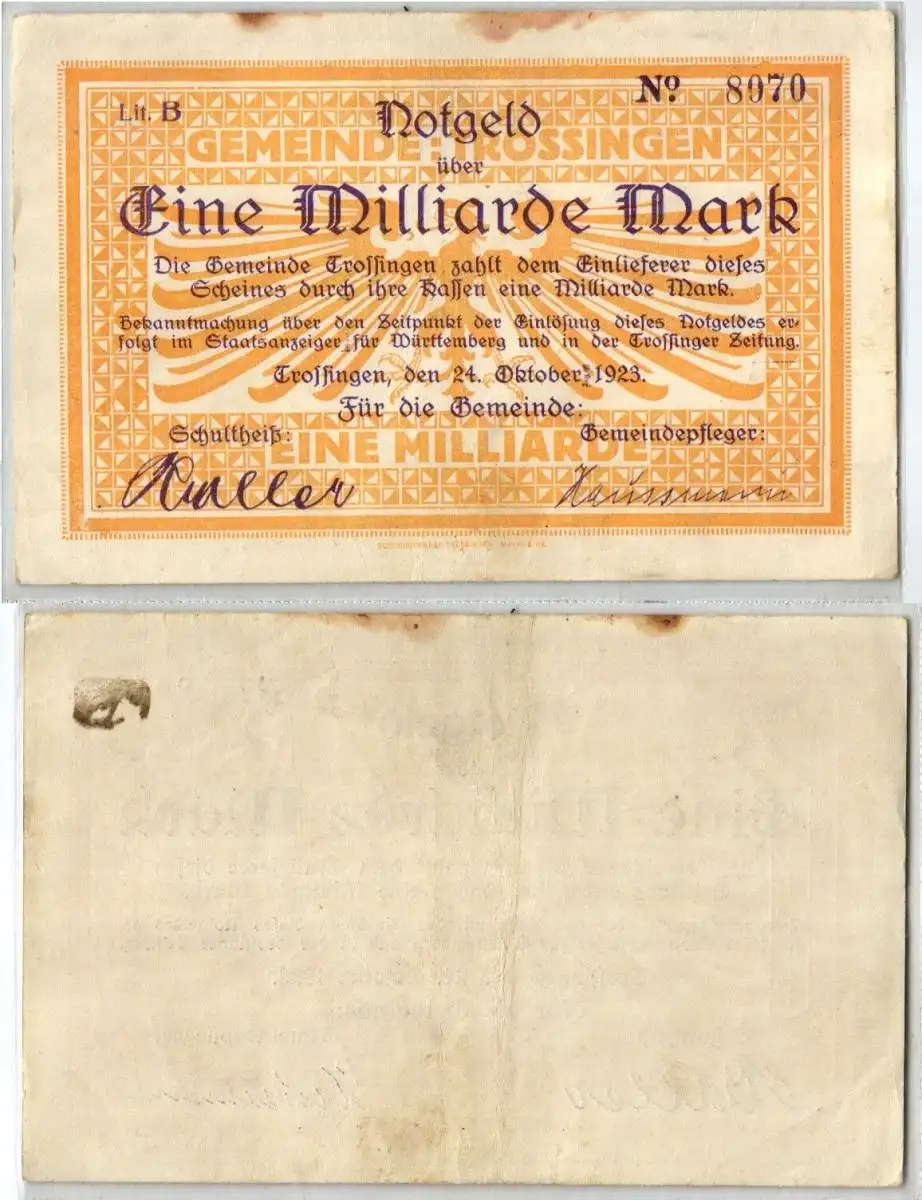 Lit. B
Nº 8070
Notgeld
GEMEINDE TROSSINGEN
über
Eine Milliarde Mark
Die Gemeinde Trossingen zahlt dem Einlieferer dieses
Scheines durch ihre Kassen eine Milliarde Mark.
Bekanntmachung über den Zeitpunkt der Einlösung dieses Notgeldes er-
folgt im Staatsanzeiger für Württemberg und in der Trossinger Zeitung.
Trossingen, den 24. Oktober 1923.
Für die Gemeinde:
Schultheiß:
Gemeindepfleger:
EINE MILLIARDE
Haussmann